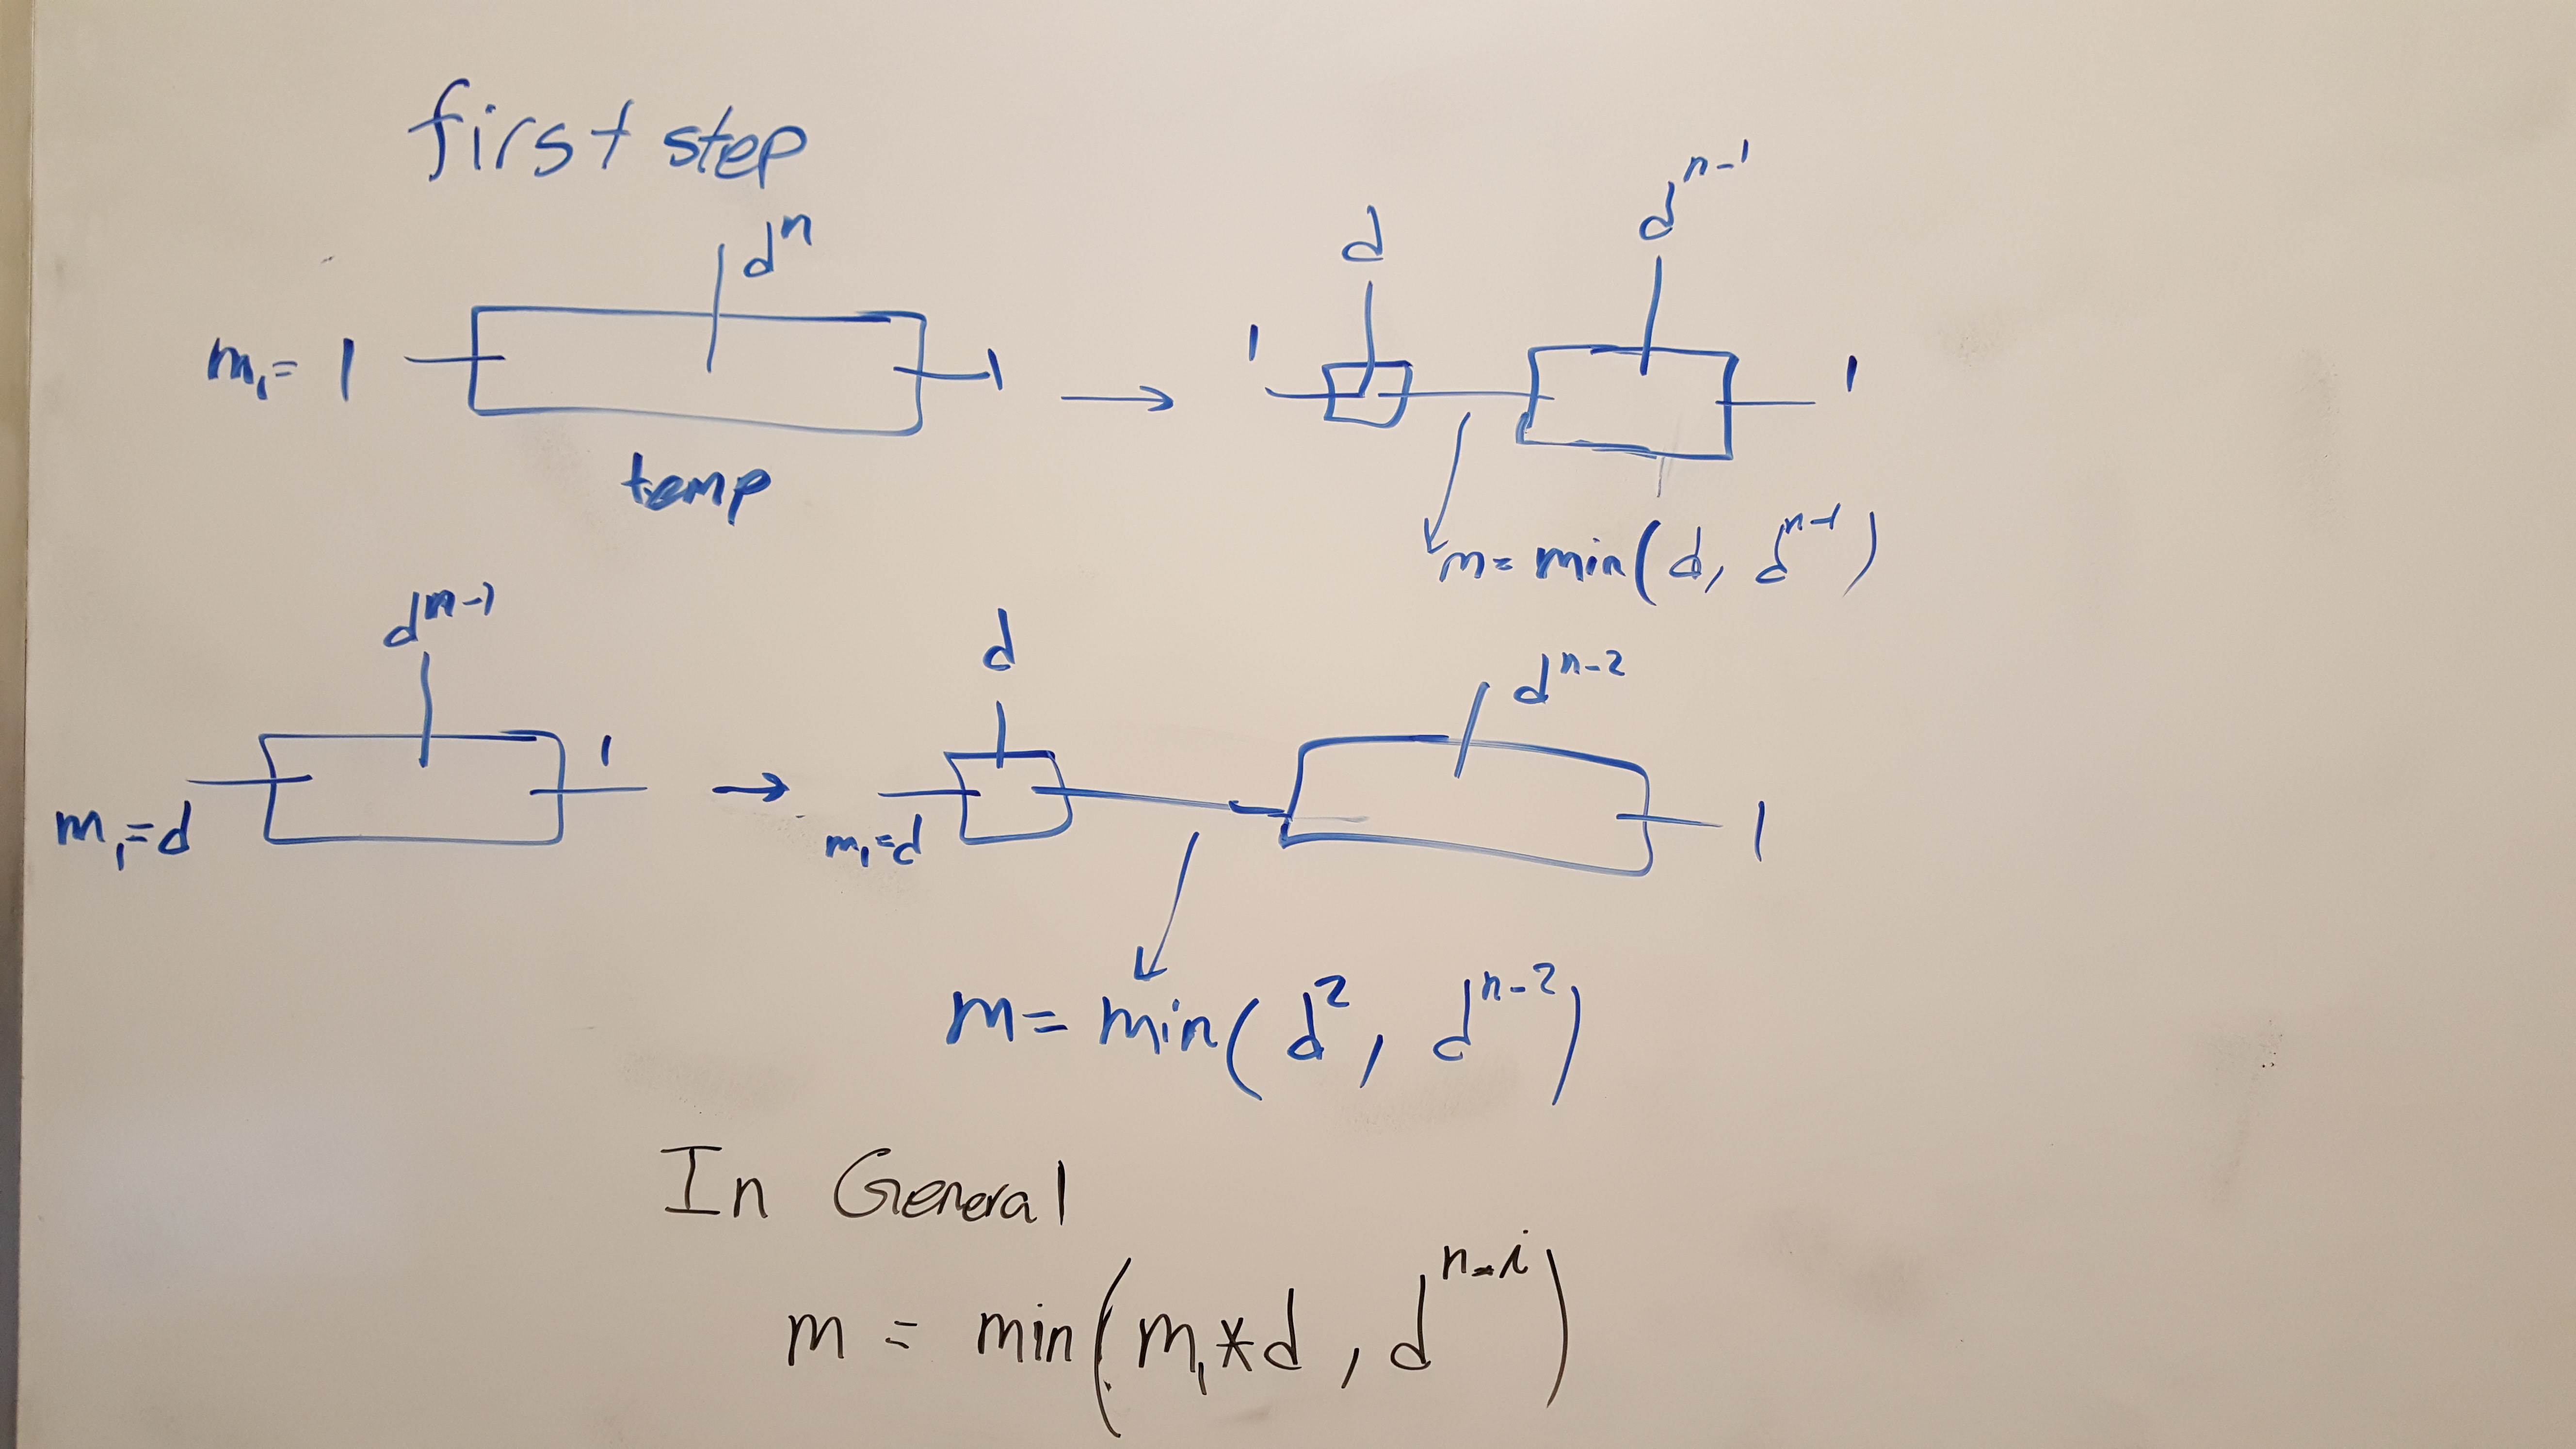 first step
dⁿ
m₁ = 1
1
temp
d
dⁿ⁻¹
1
1
m = min(d, dⁿ⁻¹)
dⁿ⁻¹
m₁ = d
1
d
dⁿ⁻²
m₁ = d
1
m = min(d², dⁿ⁻²)
In General
m = min(m₁*d, dⁿ⁻ⁱ)